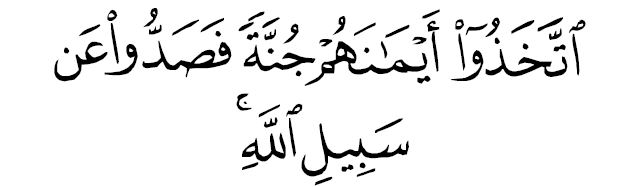 ٱتَّخَذُوٓا۟ أَيْمَـٰنَهُمْ جُنَّةً فَصَدُّوا۟ عَن
سَبِيلِ ٱللَّهِ ۚ